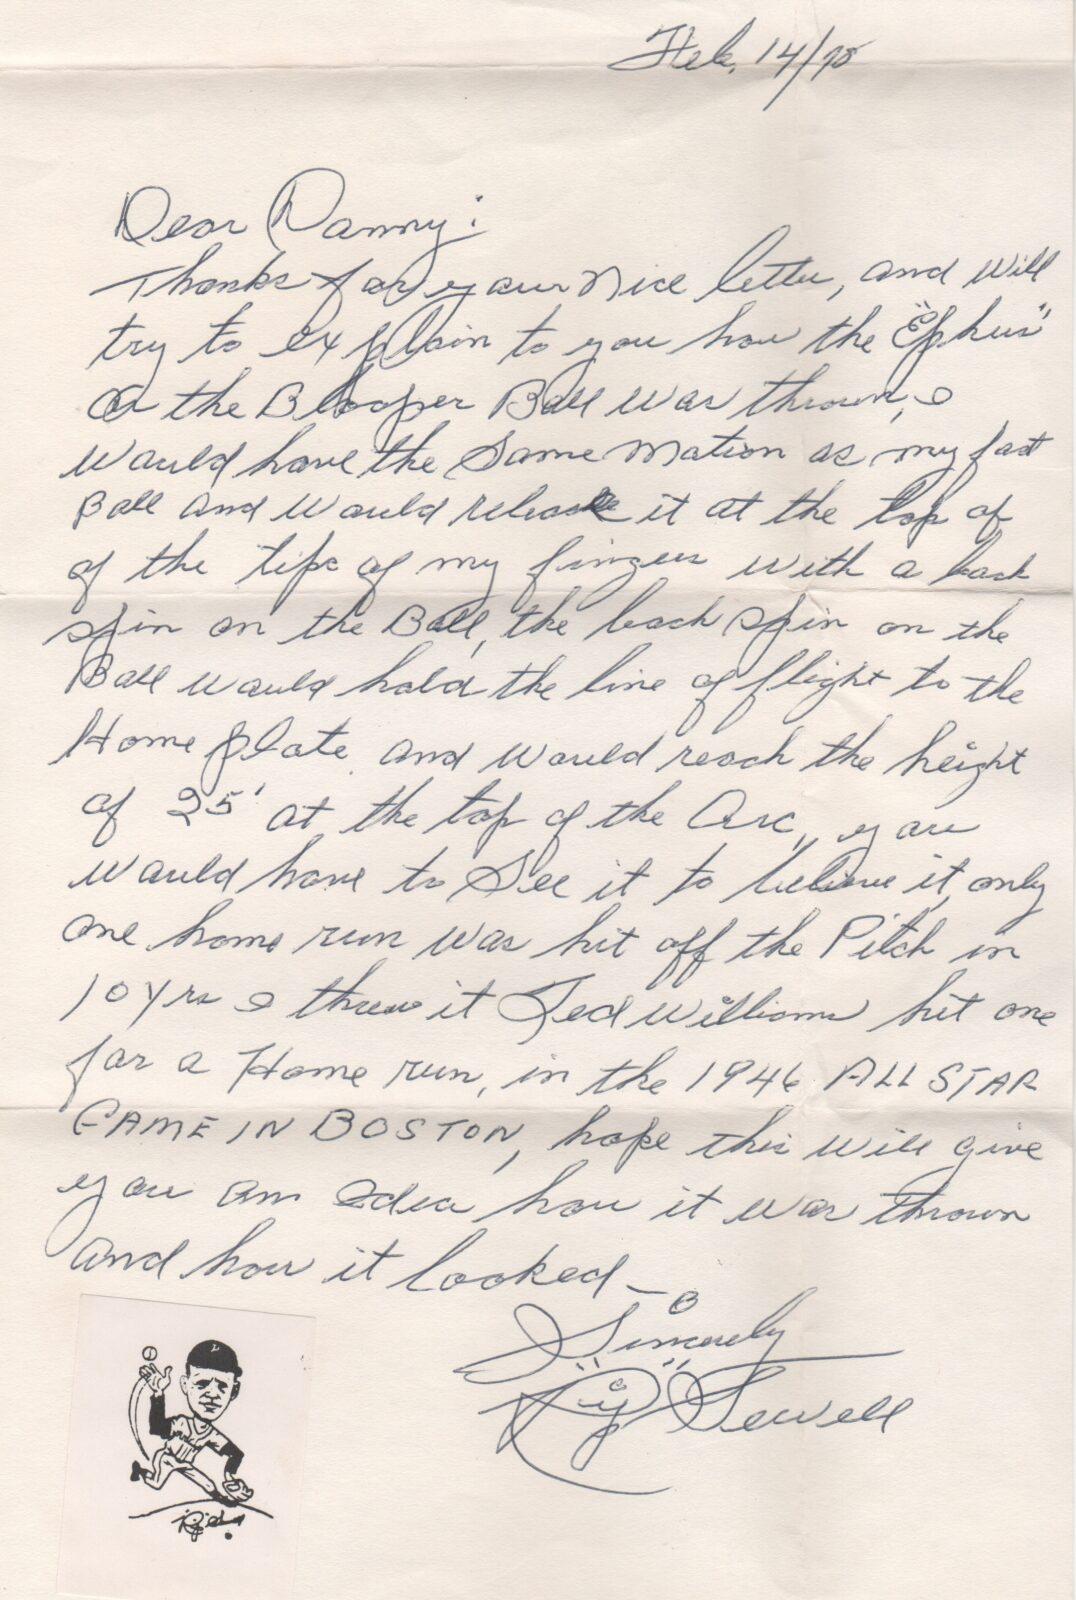 Feb. 14/78
Dear Danny:
Thanks for your nice letter, and will
try to explain to you how the "Ephus"
or the Blooper Ball was thrown, I
would have the same motion as my fast
Ball and would release it at the top of
of the tips of my fingers with a back
spin on the Ball, the back spin on the
Ball would hold the line of flight to the
Home plate and would reach the height
of 25' at the top of the Arc, you
would have to see it to believe it, only
one home run was hit off the Pitch in
10 yrs I threw it Ted Williams hit one
for a Home run, in the 1946 ALL STAR
GAME IN BOSTON, hope this will give
you an Idea how it was thrown
and how it looked —
Sincerely
"Rip" Sewell